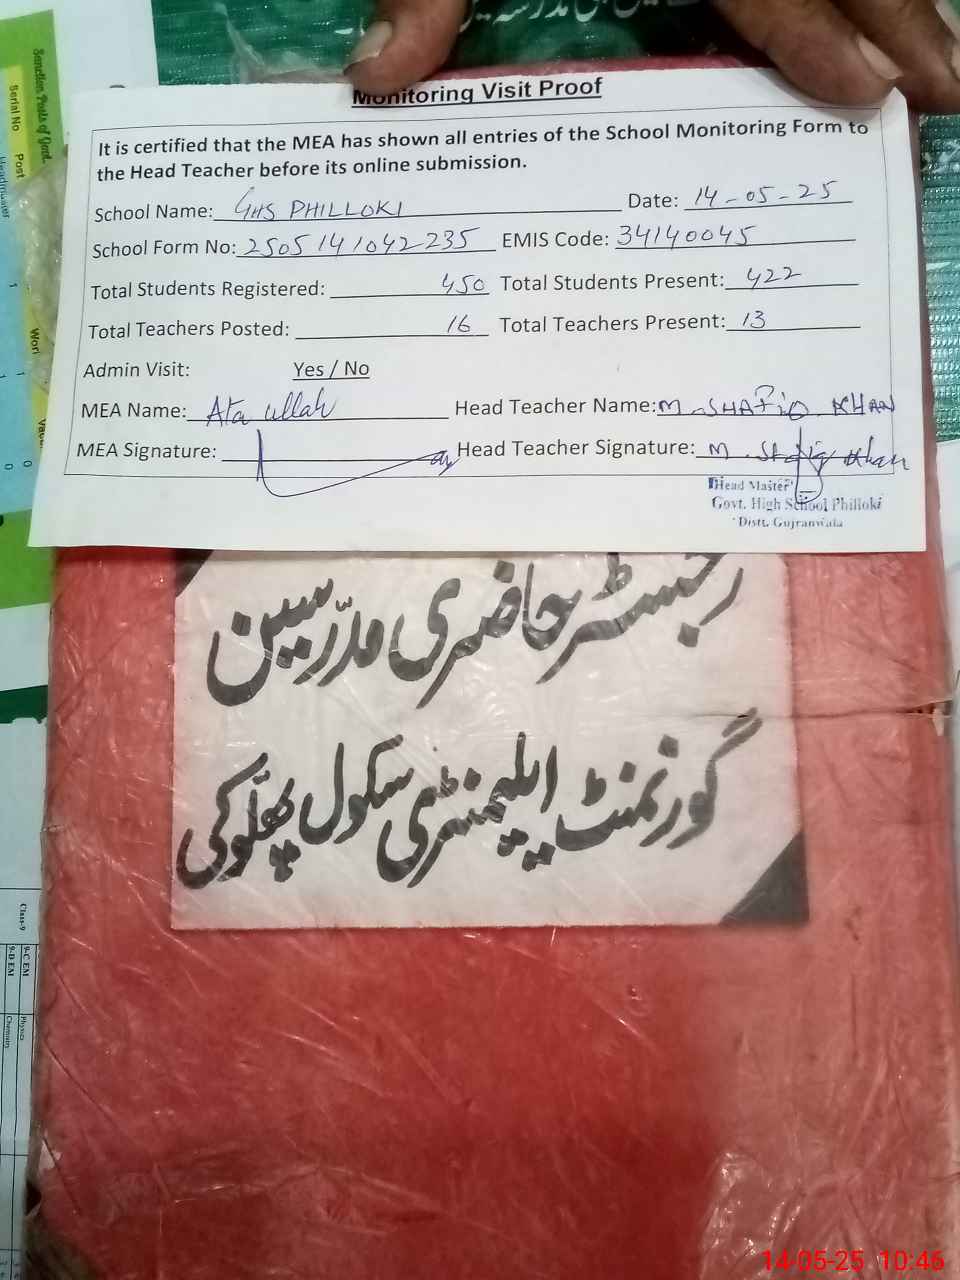 Monitoring Visit Proof
It is certified that the MEA has shown all entries of the School Monitoring Form to
the Head Teacher before its online submission.
School Name: GHS PHILLOKI Date: 14-05-25
School Form No: 2505141042235 EMIS Code: 34140045
Total Students Registered: 450 Total Students Present: 422
Total Teachers Posted: 16 Total Teachers Present: 13
Admin Visit: Yes / No
MEA Name: Ata ullah Head Teacher Name: M. SHAFIQ KHAN
MEA Signature: Head Teacher Signature: M. Shafiq Khan
Head Master
Govt. High School Philloki
Distt. Gujranwala
رجسٹر حاضری مدرّسین
گورنمنٹ ایلیمنٹری سکول پھلّوکی
Sanction Posts of Govt.
Serial No
Post
Headmaster
Class-9
9-C EM
9-D EM
Physics
Chemistry
14-05-25 10:46